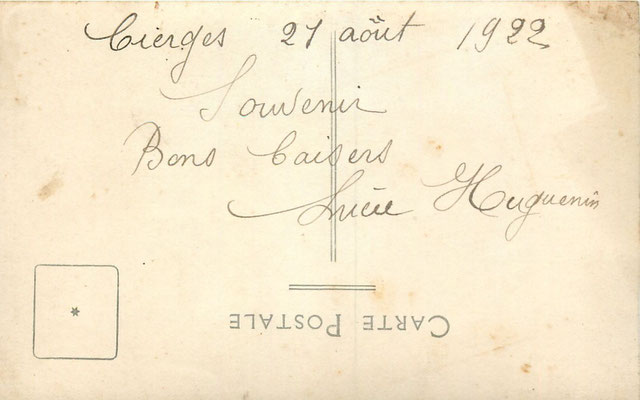 Cierges 27 août 1922
Souvenir
Bons baisers
Huguenin
CARTE POSTALE